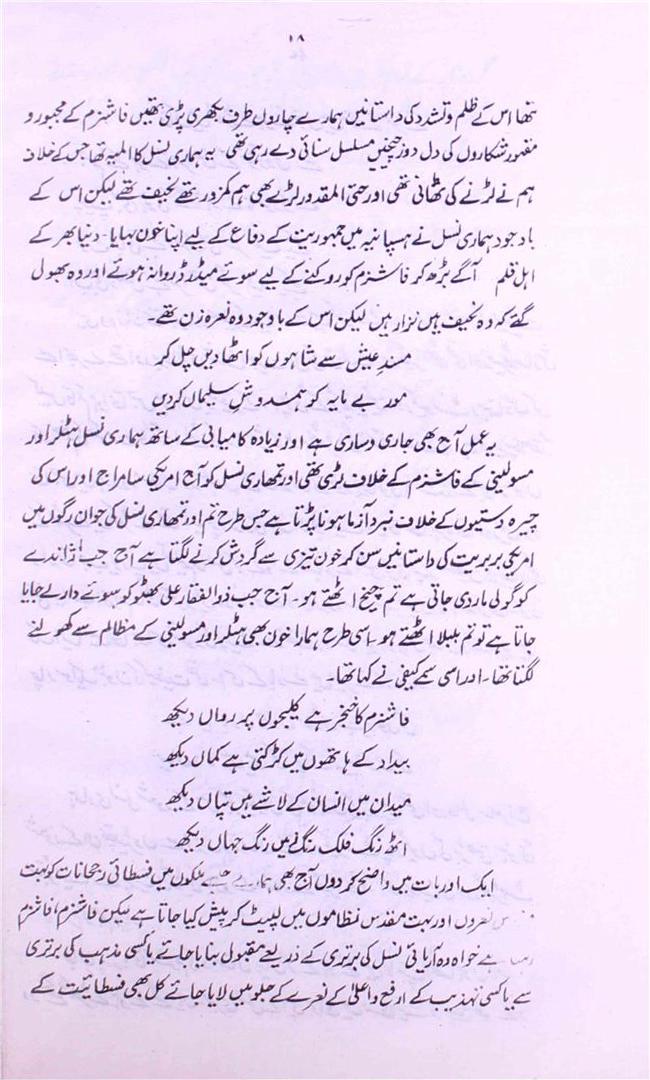 ۱۸
تھا اس کے ظلم و تشدد کی داستانیں ہمارے چاروں طرف بکھری پڑی تھیں فاشزم کے مجبور و
مقہور شکاروں کی دل دوز چیخیں مسلسل سنائی دے رہی تھی۔ یہ ہماری نسل کا المیہ تھا جس کے خلاف
ہم نے لڑنے کی ٹھانی تھی اور حتی المقدور لڑے بھی ہم کمزور تھے نحیف تھے لیکن اس کے
باوجود ہماری نسل نے ہسپانیہ میں جمہوریت کے دفاع کے لیے اپنا خون بہایا۔ دنیا بھر کے
اہل قلم آگے بڑھ کر فاشزم کو روکنے کے لیے سوئے میڈرڈ روانہ ہوئے اور وہ بھول
گئے کہ وہ نحیف ہیں نزار ہیں لیکن اس کے باوجود وہ نعرہ زن تھے۔
مسندِ عیش سے شاہوں کو اٹھا دیں چل کر
مور بے مایہ کو ہمدوشِ سلیماں کر دیں
یہ عمل آج بھی جاری و ساری ہے اور زیادہ کامیابی کے ساتھ ہماری نسل ہٹلر اور
مسولینی کے فاشزم کے خلاف لڑی تھی اور تمھاری نسل کو آج امریکی سامراج اور اس کی
چیرہ دستیوں کے خلاف نبرد آزما ہونا پڑتا ہے جس طرح تم اور تمھاری نسل کی جوان رگوں میں
امریکی بربریت کی داستانیں سن کر خون تیزی سے گردش کرنے لگتا ہے آج جب آلاندے
کو گولی مار دی جاتی ہے تم چیخ اٹھتے ہو۔ آج جب ذوالفقار علی بھٹو کو سوئے دار لے جایا
جاتا ہے تو تم بلبلا اٹھتے ہو۔ اسی طرح ہمارا خون بھی ہٹلر اور مسولینی کے مظالم سے کھولنے
لگتا تھا۔ اور اسی سمے کیفی نے کہا تھا۔
فاشزم کا خنجر ہے کلیجوں پر رواں دیکھ
بیداد کے ہاتھوں میں کڑکتی ہے کماں دیکھ
میدان میں انسان کے لاشے ہیں تپاں دیکھ
اٹھ رنگ فلک رنگ زمیں رنگ جہاں دیکھ
ایک اور بات میں واضح کر دوں آج بھی ہمارے جیسے ملکوں میں فسطائی رجحانات کو بہت
نعروں اور بہت مقدس نظاموں میں لپیٹ کر پیش کیا جاتا ہے لیکن فاشزم فاشزم
ہے خواہ وہ آریائی نسل کی برتری کے ذریعے مقبول بنایا جائے یا کسی مذہب کی برتری
سے یا کسی تہذیب کے ارفع و اعلیٰ کے نعرے کے جلو میں لایا جائے کل بھی فسطائیت کے